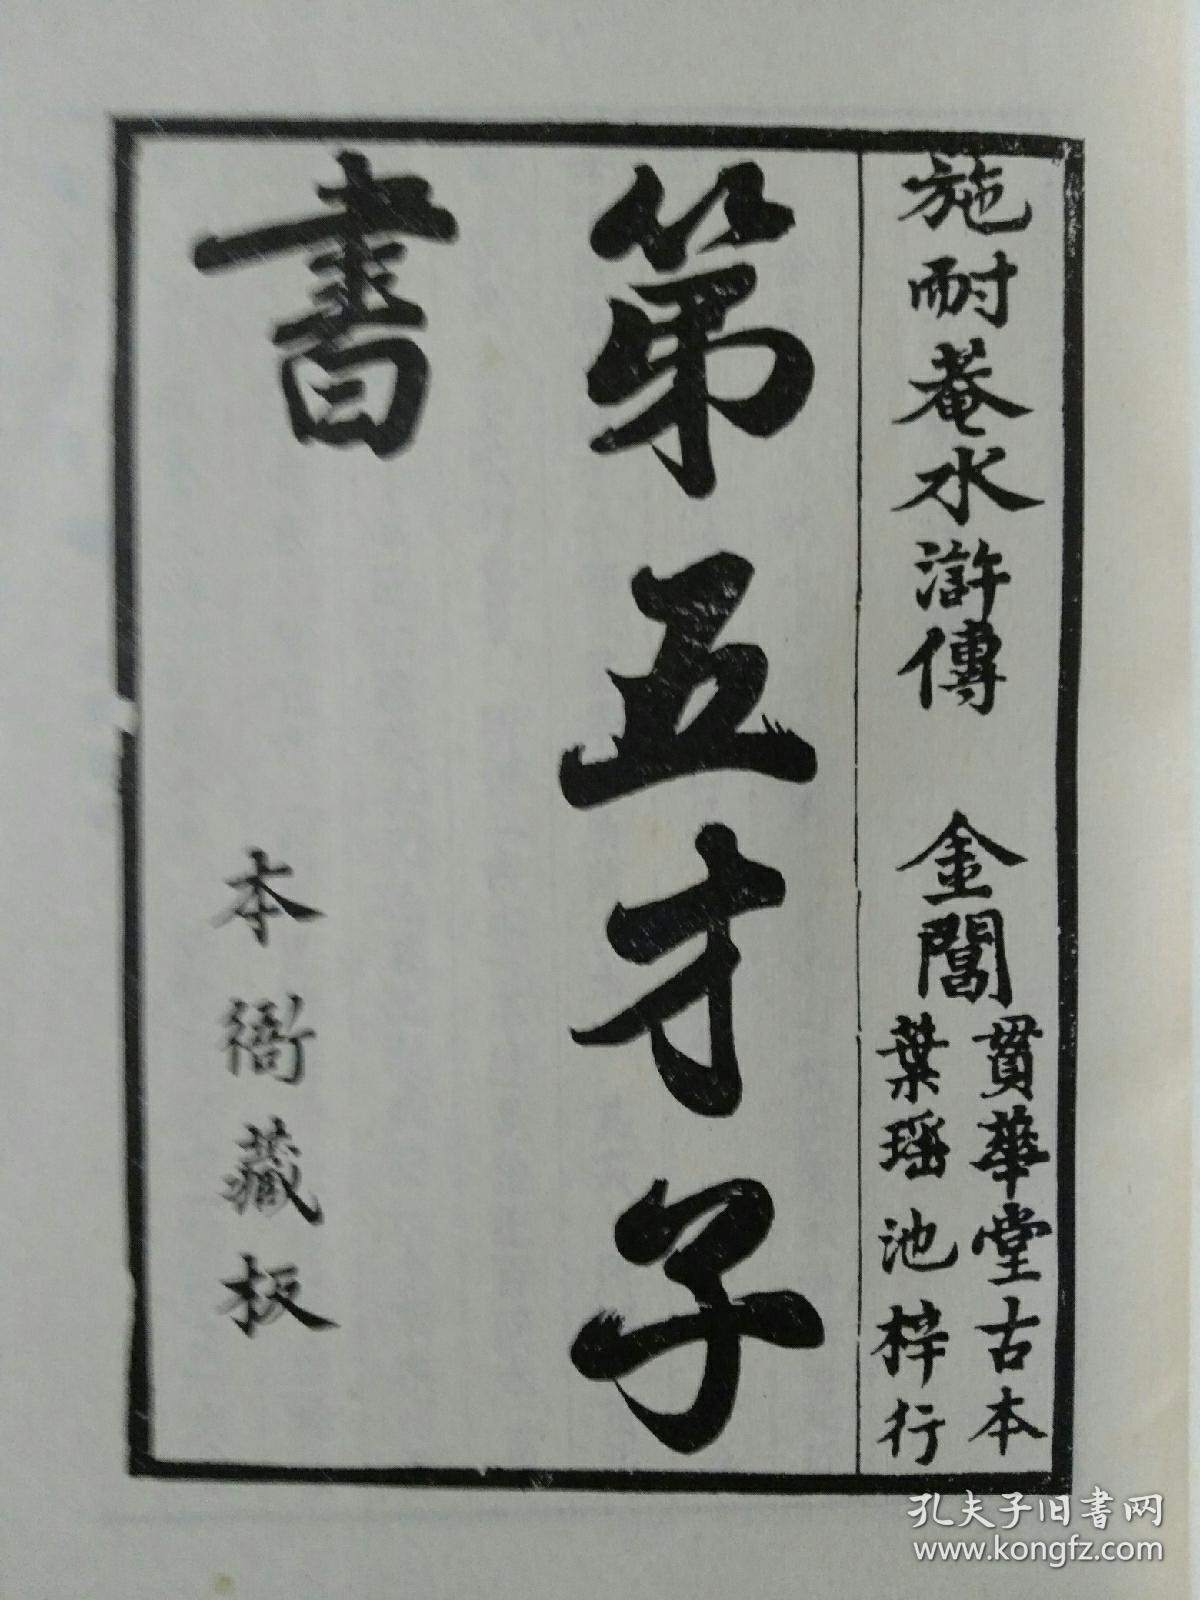 施耐菴水滸傳 金閶
貫華堂古本
葉瑶池梓行
第五才子
書
本衙藏板
孔夫子旧书网
www.kongfz.com